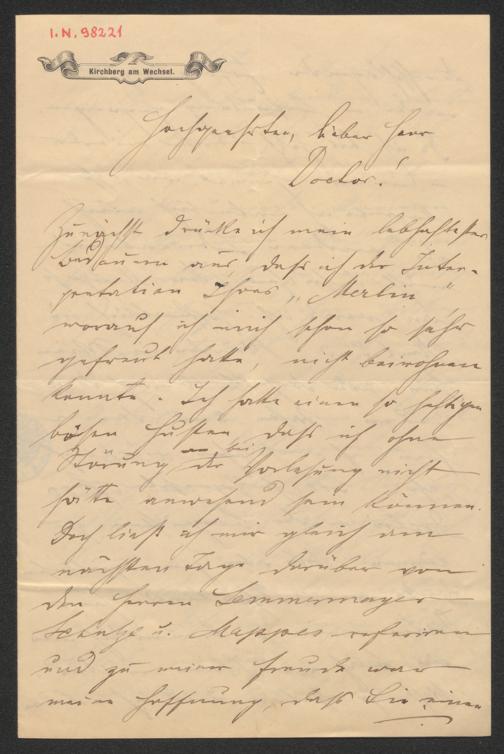 I.N. 98221
Kirchberg am Wechsel.
Hochgeehrter, lieber Herr
Doctor!
Zunächst drücke ich mein lebhaftestes
Bedauern aus, daß ich der Inter-
pretation Ihres „Merlin"
worauf ich mich schon so sehr
gefreut hatte, nicht beiwohnen
konnte. Ich hatte einen so heftigen
bösen Husten daß ich ohne
Störung der bei Vorlesung nicht
hätte anwesend sein können.
Doch ließ ich mir gleich am
nächsten Tage darüber von
den Herren Lemmermayer
u. Mappes referiren
und zu meiner Freude war
meine Hoffnung, daß Sie einen